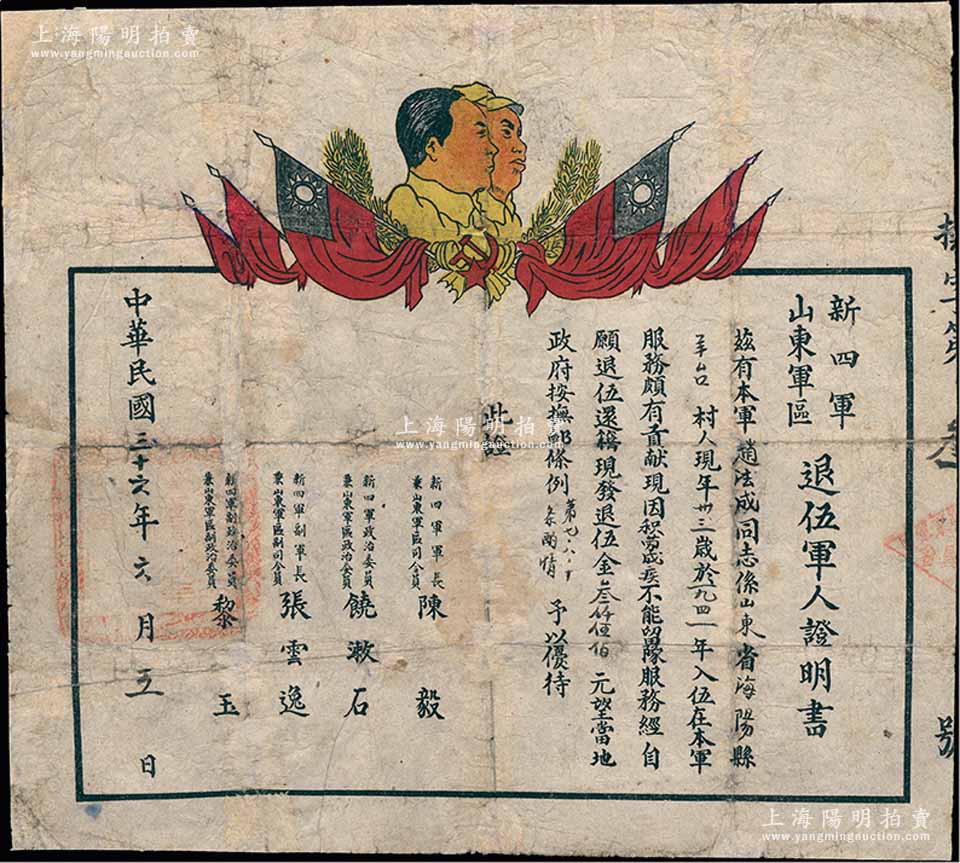 上海陽明拍賣
www.yangmingauction.com
新四軍
山東軍區
退伍軍人證明書
茲有本軍趙法成同志係山東省海陽縣
村人現年卅三歲於一九四一年入伍在本軍
服務頗有貢献現因積勞成疾不能留隊服務經自
願退伍還籍現發退伍金叁仟伍佰元望當地
政府按撫卹條例第七、八、十條酌情予以優待
此證
新四軍軍長
兼山東軍區司令員
陳毅
新四軍政治委員
兼山東軍區政治委員
饒漱石
新四軍副軍長
兼山東軍區副司令員
張雲逸
新四軍副政治委員
兼山東軍區副政治委員
黎玉
中華民國三十六年六月三日
號
上海陽明拍賣
www.yangmingauction.com
上海陽明拍賣
www.yangmingauction.com